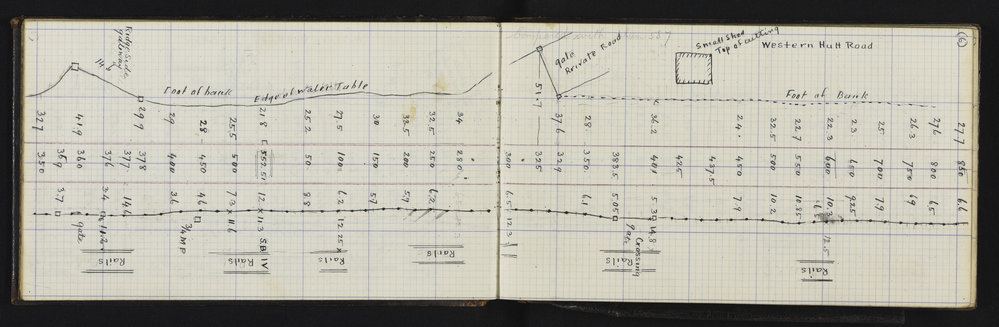 (6)
Ridge Side
gateway
14.6
Foot of bank
Edge of Water Table
gate
Private Road
Small Shed
Top of cutting
Western Hutt Road
Foot of Bank
32.7
41.9
29.9
29
28
25.5
21.8
25.2
27.5
30
32.5
34
51.7
37.6
28
36.2
24
32.5
22.7
22.3
23
25
26.3
27.6
27.7
350
360
376
377
378
400
450
500
552.51
50
100
150
200
250
280
300
325
329
350
383.5
401
425
437.5
450
500
550
600
650
700
750
800
850
3.7
3.4
14.6
3.6
4.6
7.3 x 11.6
12 x 11.3
8.8
6.2
12.25 x
5.7
5.9
6.2
6.5
12.3
6.1
5.05
5.3
14.8
7.9
10.2
10.25
10.3
12.5
9.25
7.9
6.9
6.5
6.6
gate
3/4 MP
S.B IV
gate
Crossing
Rails
Rails
Rails
Rails
Rails
Rails